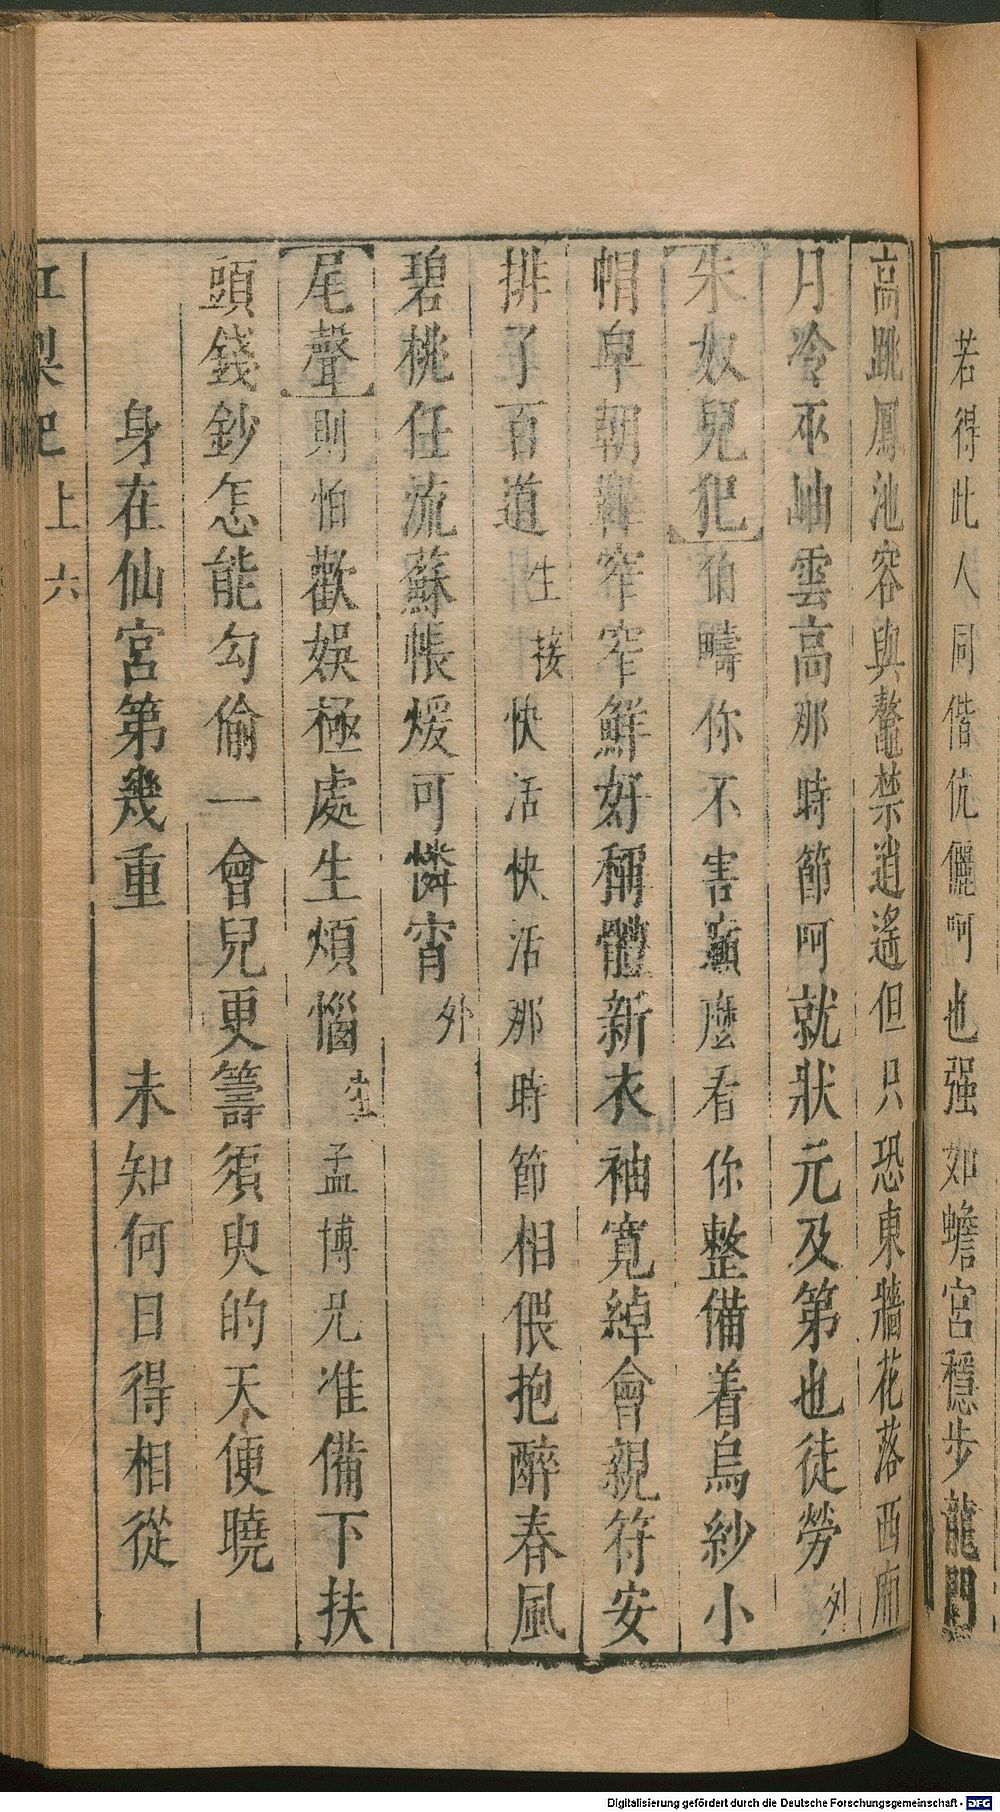 若得此人同偕伉儷呵也强如蟾宮穩步龍門
高跳鳳池容與鼇禁逍遙但只恐東牆花落西廂
月冷巫岫雲高那時節呵就狀元及第也徒勞外
朱奴兒犯伯疇你不害顚麽看你整備着烏紗小
帽皁朝鞾窄窄鮮好稱體新衣袖寬綽會親符安
排了百道生接快活快活那時節相偎抱醉春風
碧桃任流蘇帳煖可憐宵外
尾聲則怕歡娛極處生煩惱生孟博兄准備下扶
頭錢鈔怎能勾偷一會兒更籌須臾的天便曉
身在仙宮第幾重 未知何日得相從
紅梨記 上 六
Digitalisierung gefördert durch die Deutsche Forschungsgemeinschaft - DFG